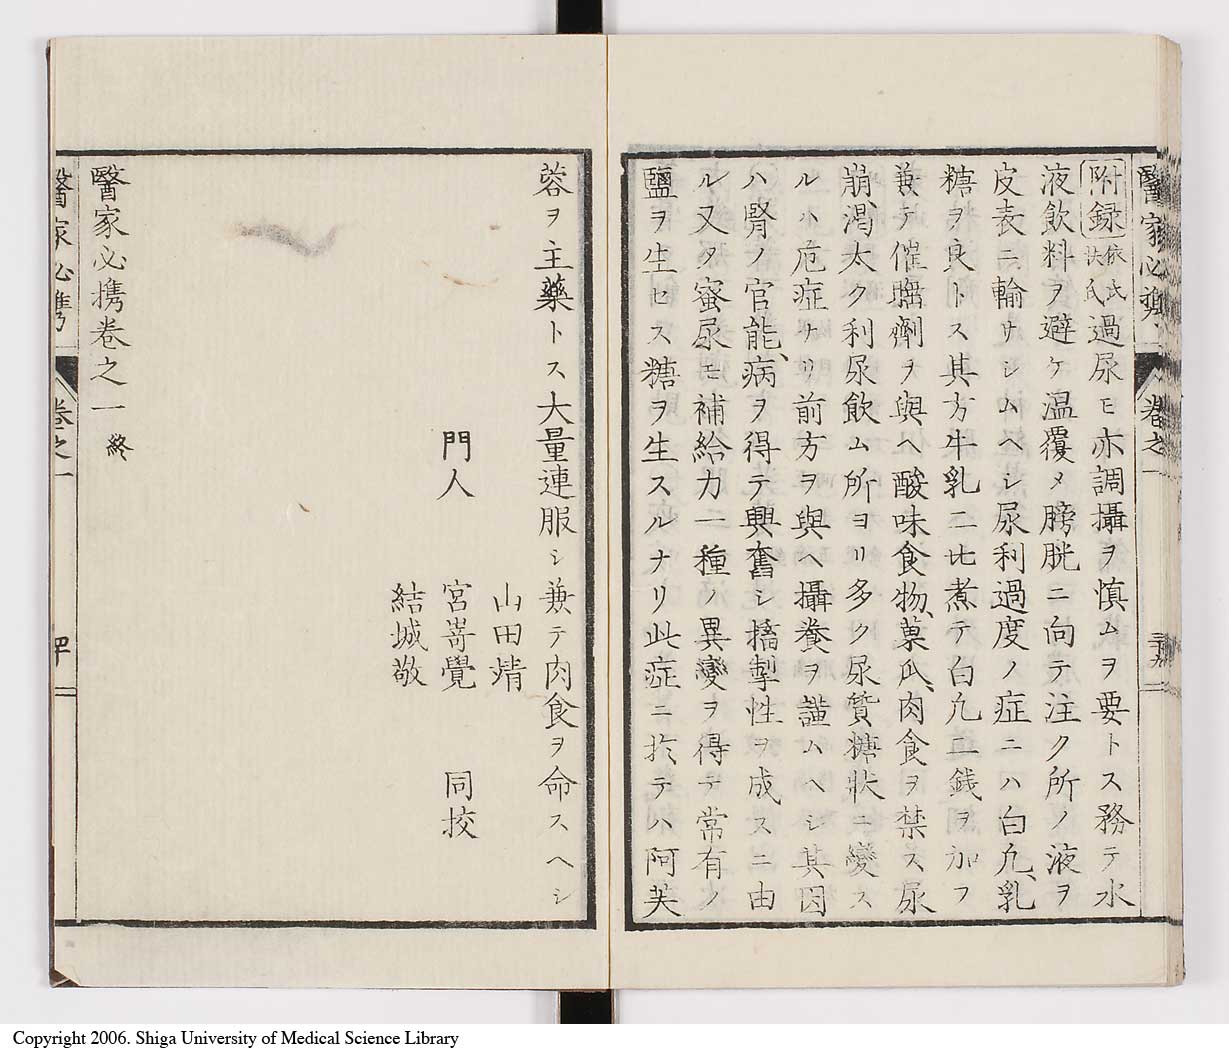 醫家必携
卷之一
附録 依氏 扶氏 過尿モ亦調攝ヲ慎ムヲ要トス務テ水
液飲料ヲ避ケ温覆メ膀胱ニ向テ注ク所ノ液ヲ
皮表ニ輸サシムヘシ尿利過度ノ症ニハ白凣、乳
糖ヲ良トス其方牛乳二匕煮テ白凣二銭ヲ加フ
兼テ催𦡀劑ヲ與ヘ酸味食物、菓瓜、肉食ヲ禁ス尿
崩、渇太ク利尿飲ム所ヨリ多ク尿質糖狀ニ變ス
ルハ危症ナリ前方ヲ與ヘ攝養ヲ謹ムヘシ其因
ハ腎ノ官能、病ヲ得テ興奮シ搐掣性ヲ成スニ由
ル又タ蜜尿モ補給力一種ノ異變ヲ得テ常有ノ
鹽ヲ生セス糖ヲ生スルナリ此症ニ於テハ阿芙
蓉ヲ主藥トス大量連服シ兼テ肉食ヲ命スヘシ
山田靖
門人 宮嵜覺 同挍
結城敬
醫家必携卷之一 終
醫家必携
卷之一